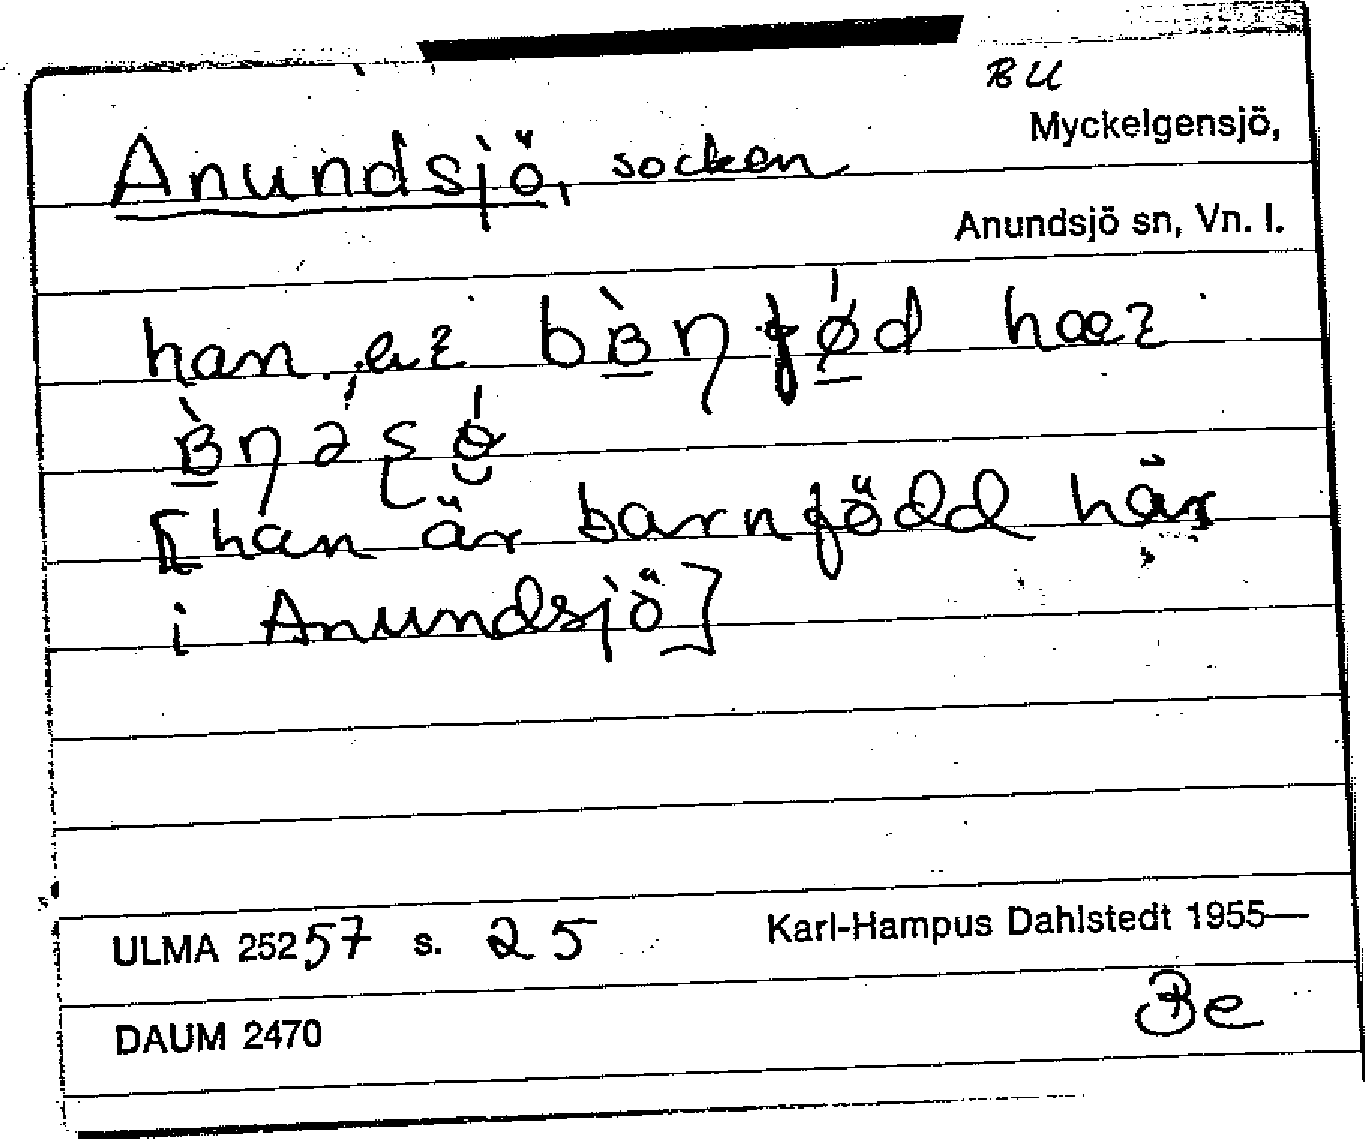 BU
Myckelgensjö,
Anundsjö, socken
Anundsjö sn, Vn. l.
han
[han är barnfödd här
i Anundsjö]
ULMA 25257 s. 25
Karl-Hampus Dahlstedt 1955—
Be
DAUM 2470